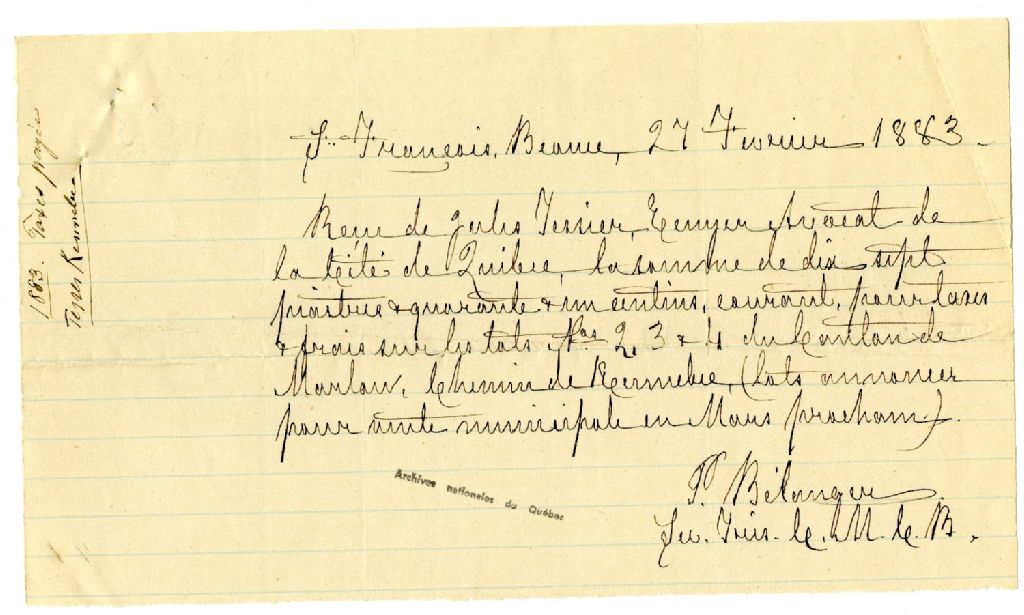 St. François, Beauce, 27 Février 1883.
Reçu de Jules Tessier, Ecuyer, Avocat de
la Cité de Québec, la somme de dix sept
piastres & quarante & un centins, courant, pour taxes
& frais sur les lots Nos 2, 3 & 4 du Canton de
Marlow, Chemin de Kennebec, (Lots annoncés
pour vente municipale en Mars prochain).
P. Bélanger
Sec. Trés. C. M. C. B.
Archives nationales du Québec
1883. Taxes payées
Terres Kennebec